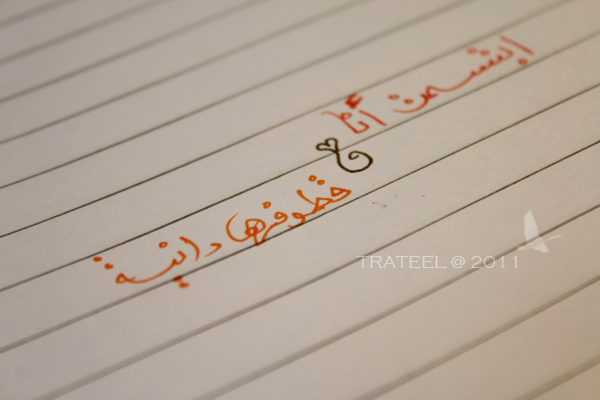 ابتسمت أنا
&
قطوفها دانية
TRATEEL @ 2011